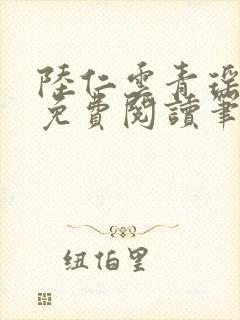 陸仁雲青瑤
免費閱讀筆
纽伯里